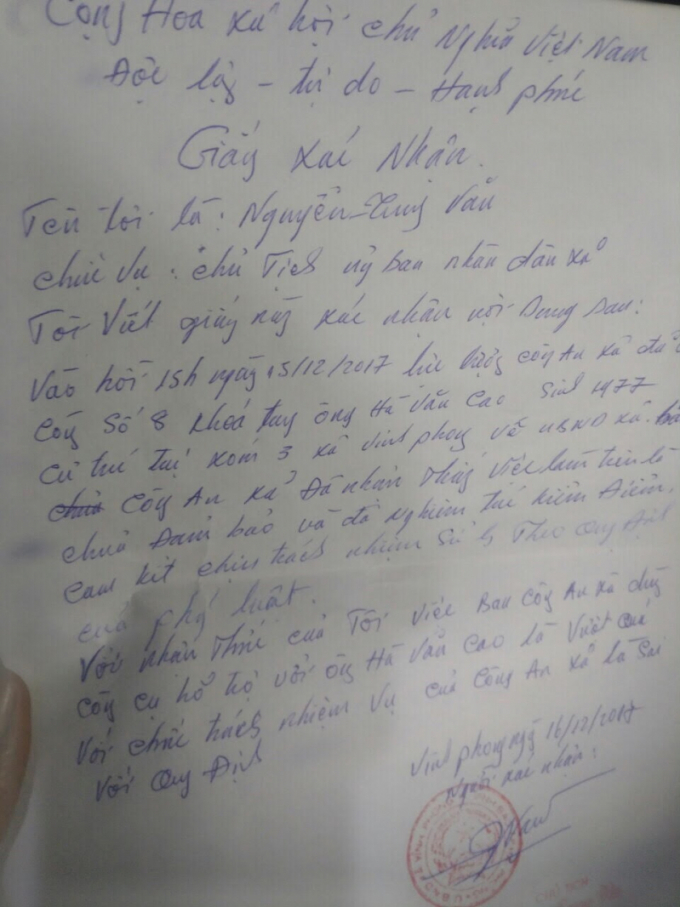 Cộng Hòa xã hội chủ Nghĩa Việt Nam
Độc lập - tự do - Hạnh phúc
Giấy xác Nhận.
Tên tôi là: Nguyễn Văn
chức vụ: chủ Tịch uỷ ban nhân dân xã
Tôi Viết giấy này xác nhận nội Dung sau:
Vào hồi 15h ngày 15/12/2017 lực lượng công An xã
Còng Số 8 khoá tay ông Hà Văn Cao Sinh 1977
Cư trú tại xóm 3 xã vinh phong về UBND xã.
Công An xã Đã nhận Thấy việc làm trên là
chưa Đảm bảo và đã nghiêm túc kiểm Điểm,
cam kết chịu trách nhiệm Theo Quy Định
của luật.
Với nhận Thức của Tôi việc Ban Công An xã dùng
công cụ hỗ trợ với ông Hà Văn Cao là Vượt quá
với chức trách nhiệm vụ của Công An xã là sai
với Quy Định
phong ngày 16/12/2017
Người xác nhận: